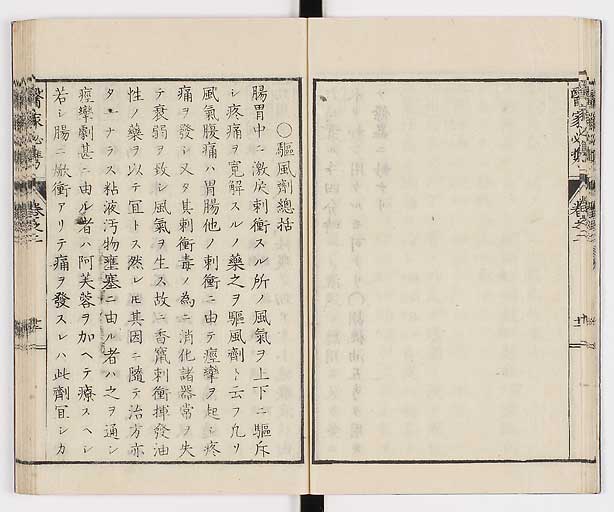 醫家必携
卷之二
廿
〇驅風劑總括
腸胃中ニ激戾刺衝スル所ノ風氣ヲ上下ニ驅斥
シ疼痛ヲ寬解スルノ藥之ヲ驅風劑ト云フ凡ソ
風氣腹痛ハ胃腸他ノ刺衝ニ由テ痙攣ヲ起シ疼
痛ヲ發シ又タ其刺衝毒ノ為ニ消化諸器常ヲ失
テ衰弱ヲ致シ風氣ヲ生ス故ニ香竄刺衝揮發油
性ノ藥ヲ以テ冝トス然レ𪜈其因ニ隨テ治方亦
タナラス粘液汚物壅塞ニ由ル者ハ之ヲ通シ
痙攣劇甚ニ由ル者ハ阿芙蓉ヲ加ヘテ療スヘシ
若シ腸ニ焮衝アリテ痛ヲ發スレハ此劑冝シカ
醫家必携
卷之二